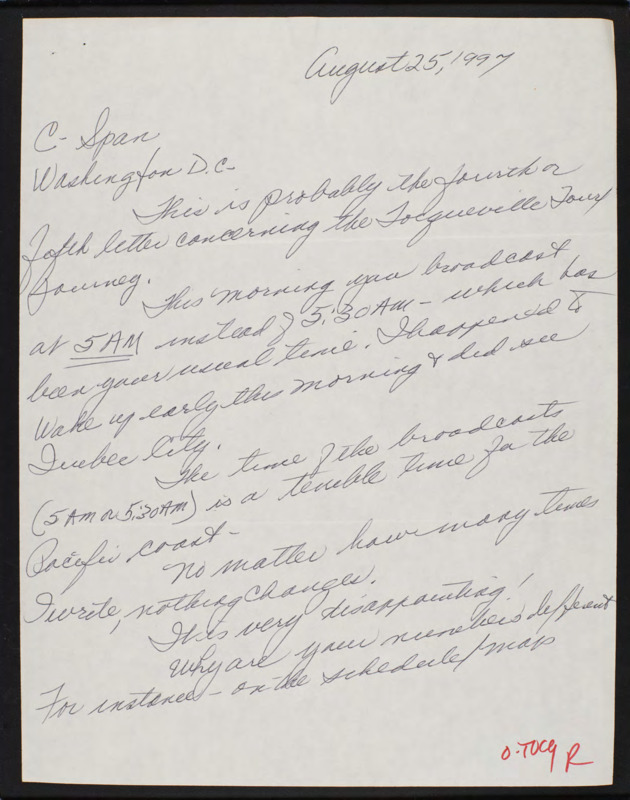 August 25, 1997
C-Span
Washington D.C.
This is probably the fourth or
fifth letter concerning the Tocqueville Tour/
Journey.
This morning you broadcast
at 5 AM instead of 5:30 AM - which has
been your usual time. I happened to
wake up early this morning & did see
Quebec City.
The time of the broadcasts
(5 AM or 5:30 AM) is a terrible time for the
Pacific coast -
No matter how many times
I write, nothing changes.
It is very disappointing!
Why are your numbers different
For instance - on the schedule/map
O-TOCQ R